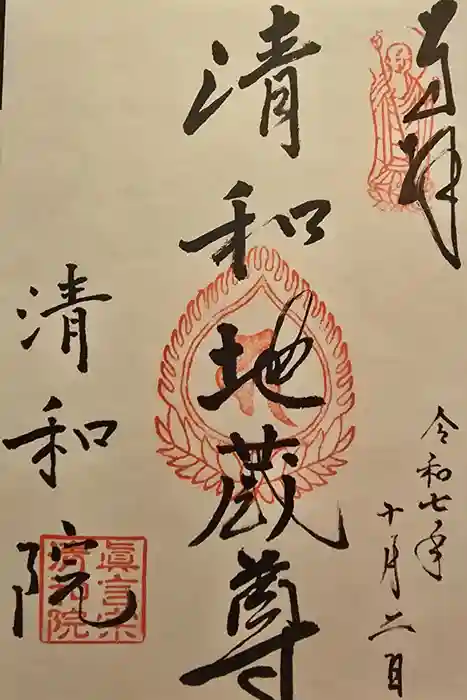 奉拝
令和七年
十月二日
清和地蔵尊
清和院
眞言宗
清和院